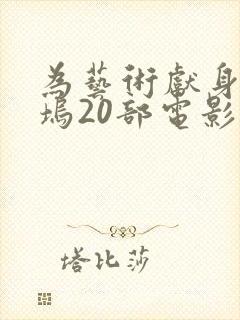 為藝術獻身
塢20部電影
塔比莎